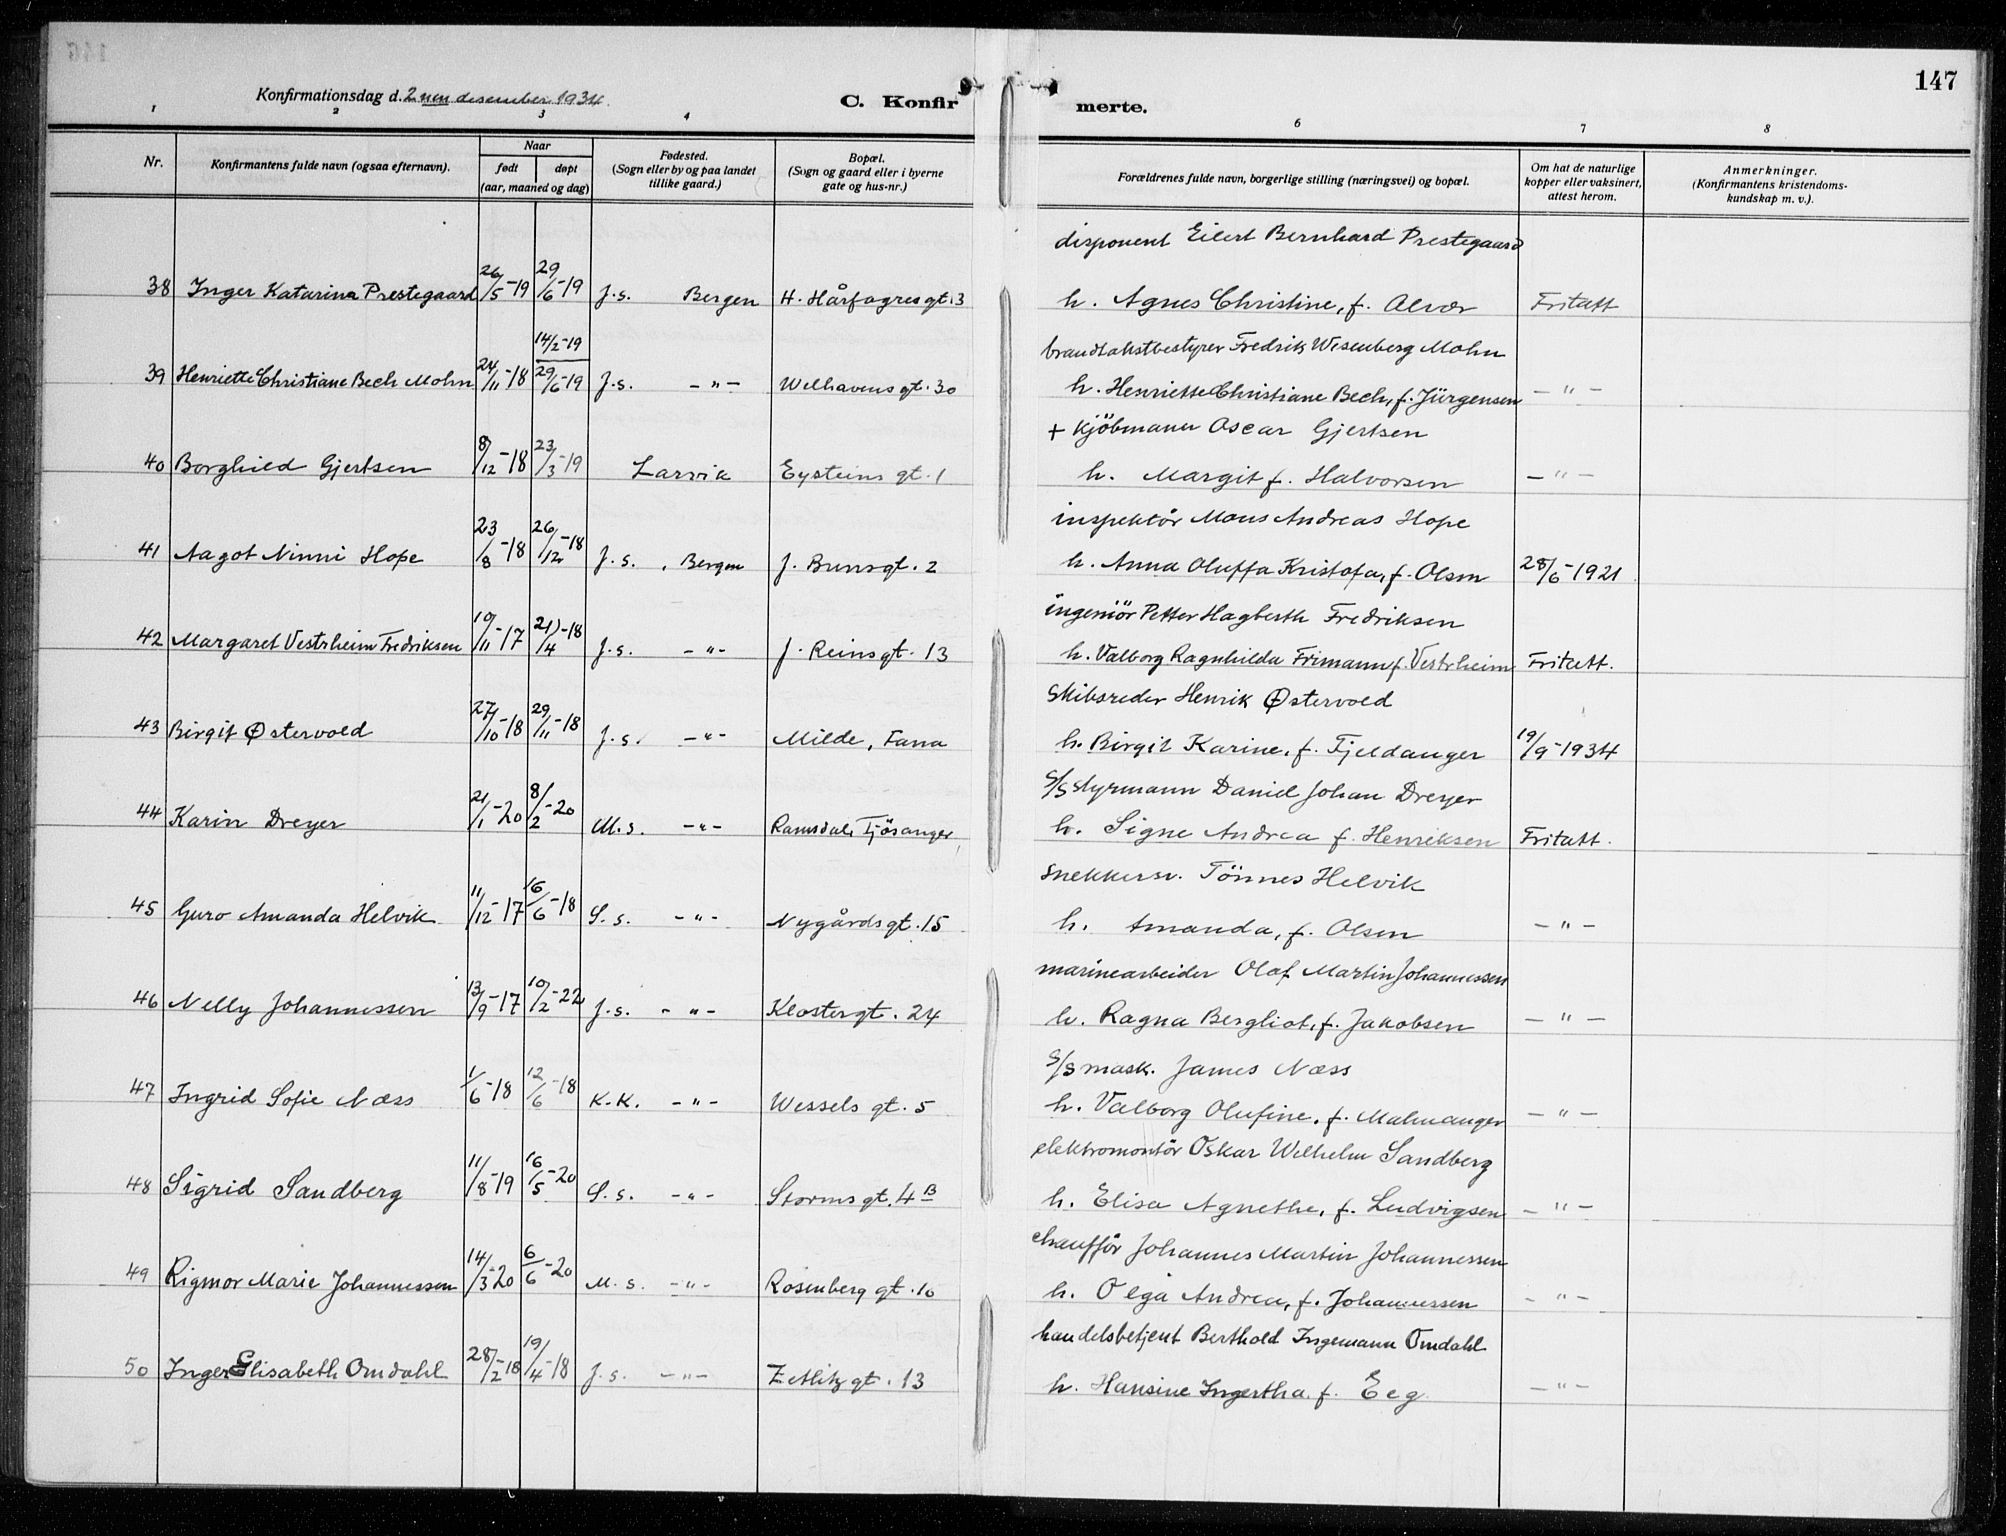 147
Konfirmationsdag d. 2nen desember 1934.
C. Konfirmerte.
1 2 3 4 6 7 8
Nr.
Konfirmantens fulde navn (ogsaa efternavn).
Naar
født
døpt
(aar, maaned og dag)
Fødested.
(Sogn eller by og paa landet
tillike gaard.)
Bopæl.
(Sogn og gaard eller i byerne
gate og hus-nr.)
Forældrenes fulde navn, borgerlige stilling (næringsvei) og bopæl.
Om hat de naturlige
kopper eller vaksinert,
attest herom.
Anmerkninger.
(Konfirmantens kristendoms-
kundskap m. v.).
disponent Eilert Bernhard Prestegaard
38 Inger Katarina Prestegaard 26/5-19 29/6-19 J.s. Bergen H. Hårfagresgt. 3 h. Agnes Christine, f. Alvær Fritatt
14/2-19 brandtakstbestyrer Fredrik Wesenberg Mohn
39 Henriette Christiane Bech Mohn 24/11-18 29/6-19 J.s. -"- Welhavensgt. 30 h. Henriette Christiane Bech, f. Jürgensen -"-
+ Kjöbmann Oscar Gjertsen
40 Borghild Gjertsen 8/12-18 23/3-19 Larvik Eysteins gt. 1 h. Margit f. Halvorsen -"-
inspektör Mons Andreas Hope
41 Aagot Ninni Hope 23/8-18 26/12-18 J.s. Bergen J. Brunsgt. 2 h. Anna Oluffa Kristofa, f. Olsen 28/6-1921
ingeniör Petter Hagberth Fredriksen
42 Margaret Vestrheim Fredriksen 10/11-17 21/4-18 J.s. -"- J. Reinsgt. 13 h. Valborg Ragnhilda Frimann f. Vestrheim Fritatt.
Skibsreder Henrik Østervold
43 Birgit Østervold 27/10-18 29/11-18 J.s. -"- Milde, Fana h. Birgit Karine, f. Fjeldanger 19/9-1934
S/S styrmann Daniel Johan Dreyer
44 Karin Dreyer 21/1-20 8/2-20 M.s. -"- Ramsdal, Fjösanger h. Signe Andrea f. Henriksen Fritatt.
snekkersv. Tönnes Helvik
45 Guro Amanda Helvik 11/12-17 16/6-18 S.s. -"- Nygårdsgt. 15 h. Amanda, f. Olsen -"-
marinearbeider Olaf Martin Johannessen
46 Nelly Johannessen 13/9-17 10/2-22 J.s. -"- Klostergt. 24 h. Ragna Bergliot, f. Jakobsen -"-
S/S mask. James Næss
47 Ingrid Sofie Næss 1/6-18 12/6-18 K.K. -"- Wessels gt. 5 h. Valborg Olufine, f. Malmanger -"-
elektromontör Oskar Wilhelm Sandberg
48 Sigrid Sandberg 11/8-19 16/5-20 S.s. -"- Stormsgt. 4 B h. Elisa Agnethe, f. Ludvigsen -"-
chaufför Johannes Martin Johannessen
49 Rigmor Marie Johannessen 14/3-20 6/6-20 M.s. -"- Rosenberg gt. 10 h. Olga Andrea, f. Johannessen -"-
handelsbetjent Berthold Ingemann Omdahl
50 Inger Elisabeth Omdahl 28/2-18 19/4-18 J.s. -"- Zetlitz gt. 13 h. Hansine Ingertha f. Eeg -"-